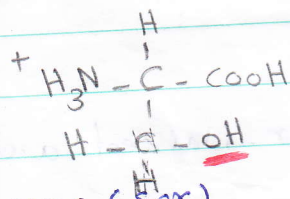 H
+
H3N - C - COOH
H - C - OH
H